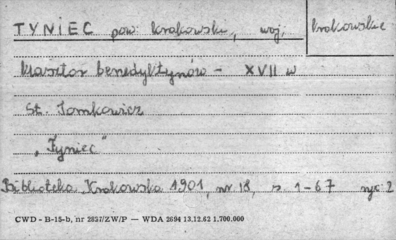 TYNIEC pow. krakowski, woj. krakowskie
klasztor benedyktynów - XVII w
St. Tomkowicz
"Tyniec"
Biblioteka Krakowska 1901, nr. 18, s. 1-67 ryc. 2
CWD - B-15-b, nr 2837/ZW/P — WDA 2694 13.12.62 1.700.000